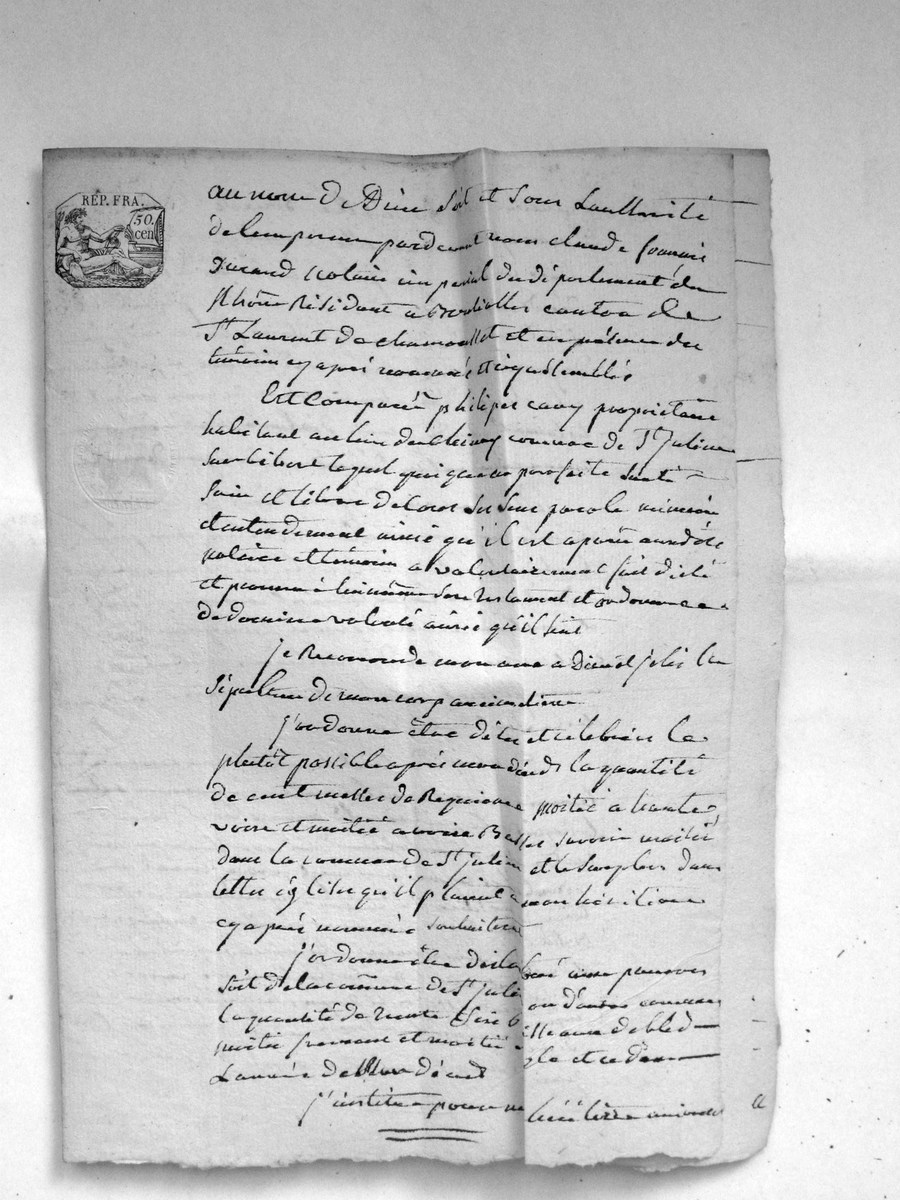 REP. FRA.
50.
cen
au nom de Dieu soit et sous Lauthorité
de lempereur pardevant nous claude francois
Durand notaire imperial du département du
Rhône Résidant a canton de
St Laurent de chamousset et en présence des
témoins cy après nommés et
Est Comparu philipes propriétaire
habitant au lieu de commune de St Julien
sur bibost lequel quoique en parfaite santé
sain et libre de corps ses sens parole mémoire
et entendement ainsi qu'il est aparu audit
notaire et témoins a volontairement fait dicté
et prononcé lui même son testament et ordonnance
de dernière volonté ainsi qu'il suit
je Recomande mon ame a Dieu et la
Sépulture de mon corps
j'ordonne être dites et célébrées le
plutôt possible après mon décès la quantité
de cent messes de Requiem moitié a haute
voix et moitié a voix Basse savoir moitié
dans la commune de St Julien et le surplus dans
telle église qu'il plaira a mon héritière
cy après nommée
j'ordonne être aux pauvres
soit de la comune de St Julien ou d'autres communes
la quantité de trente de bled
moitié froment et moitié et ce dans
Lannée de Mon décès
j'institue pour héritière